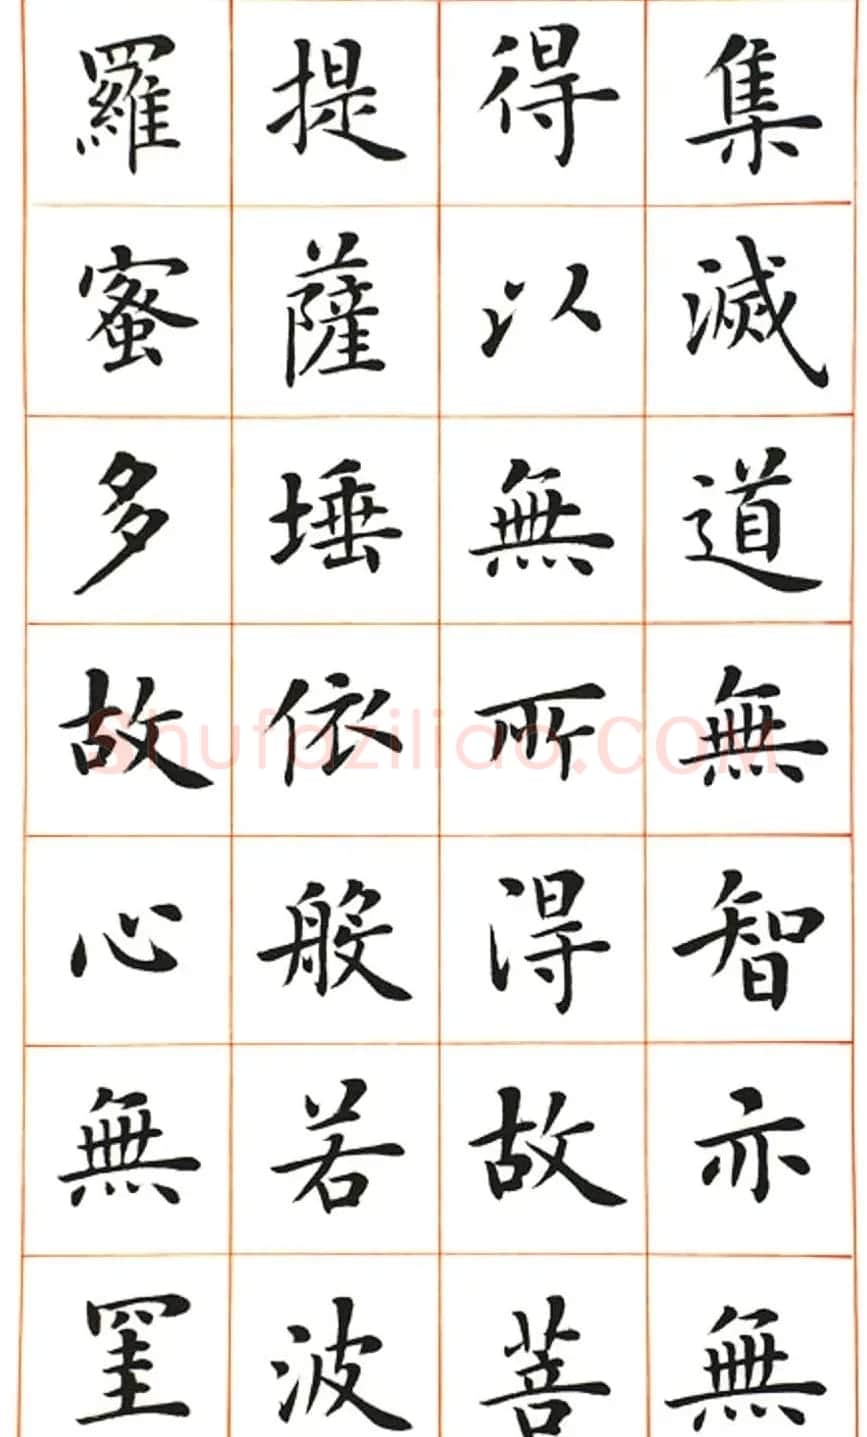 集滅道無智亦無
得以無所得故菩
提薩埵依般若波
羅蜜多故心無罣
Shufaziliao.COM